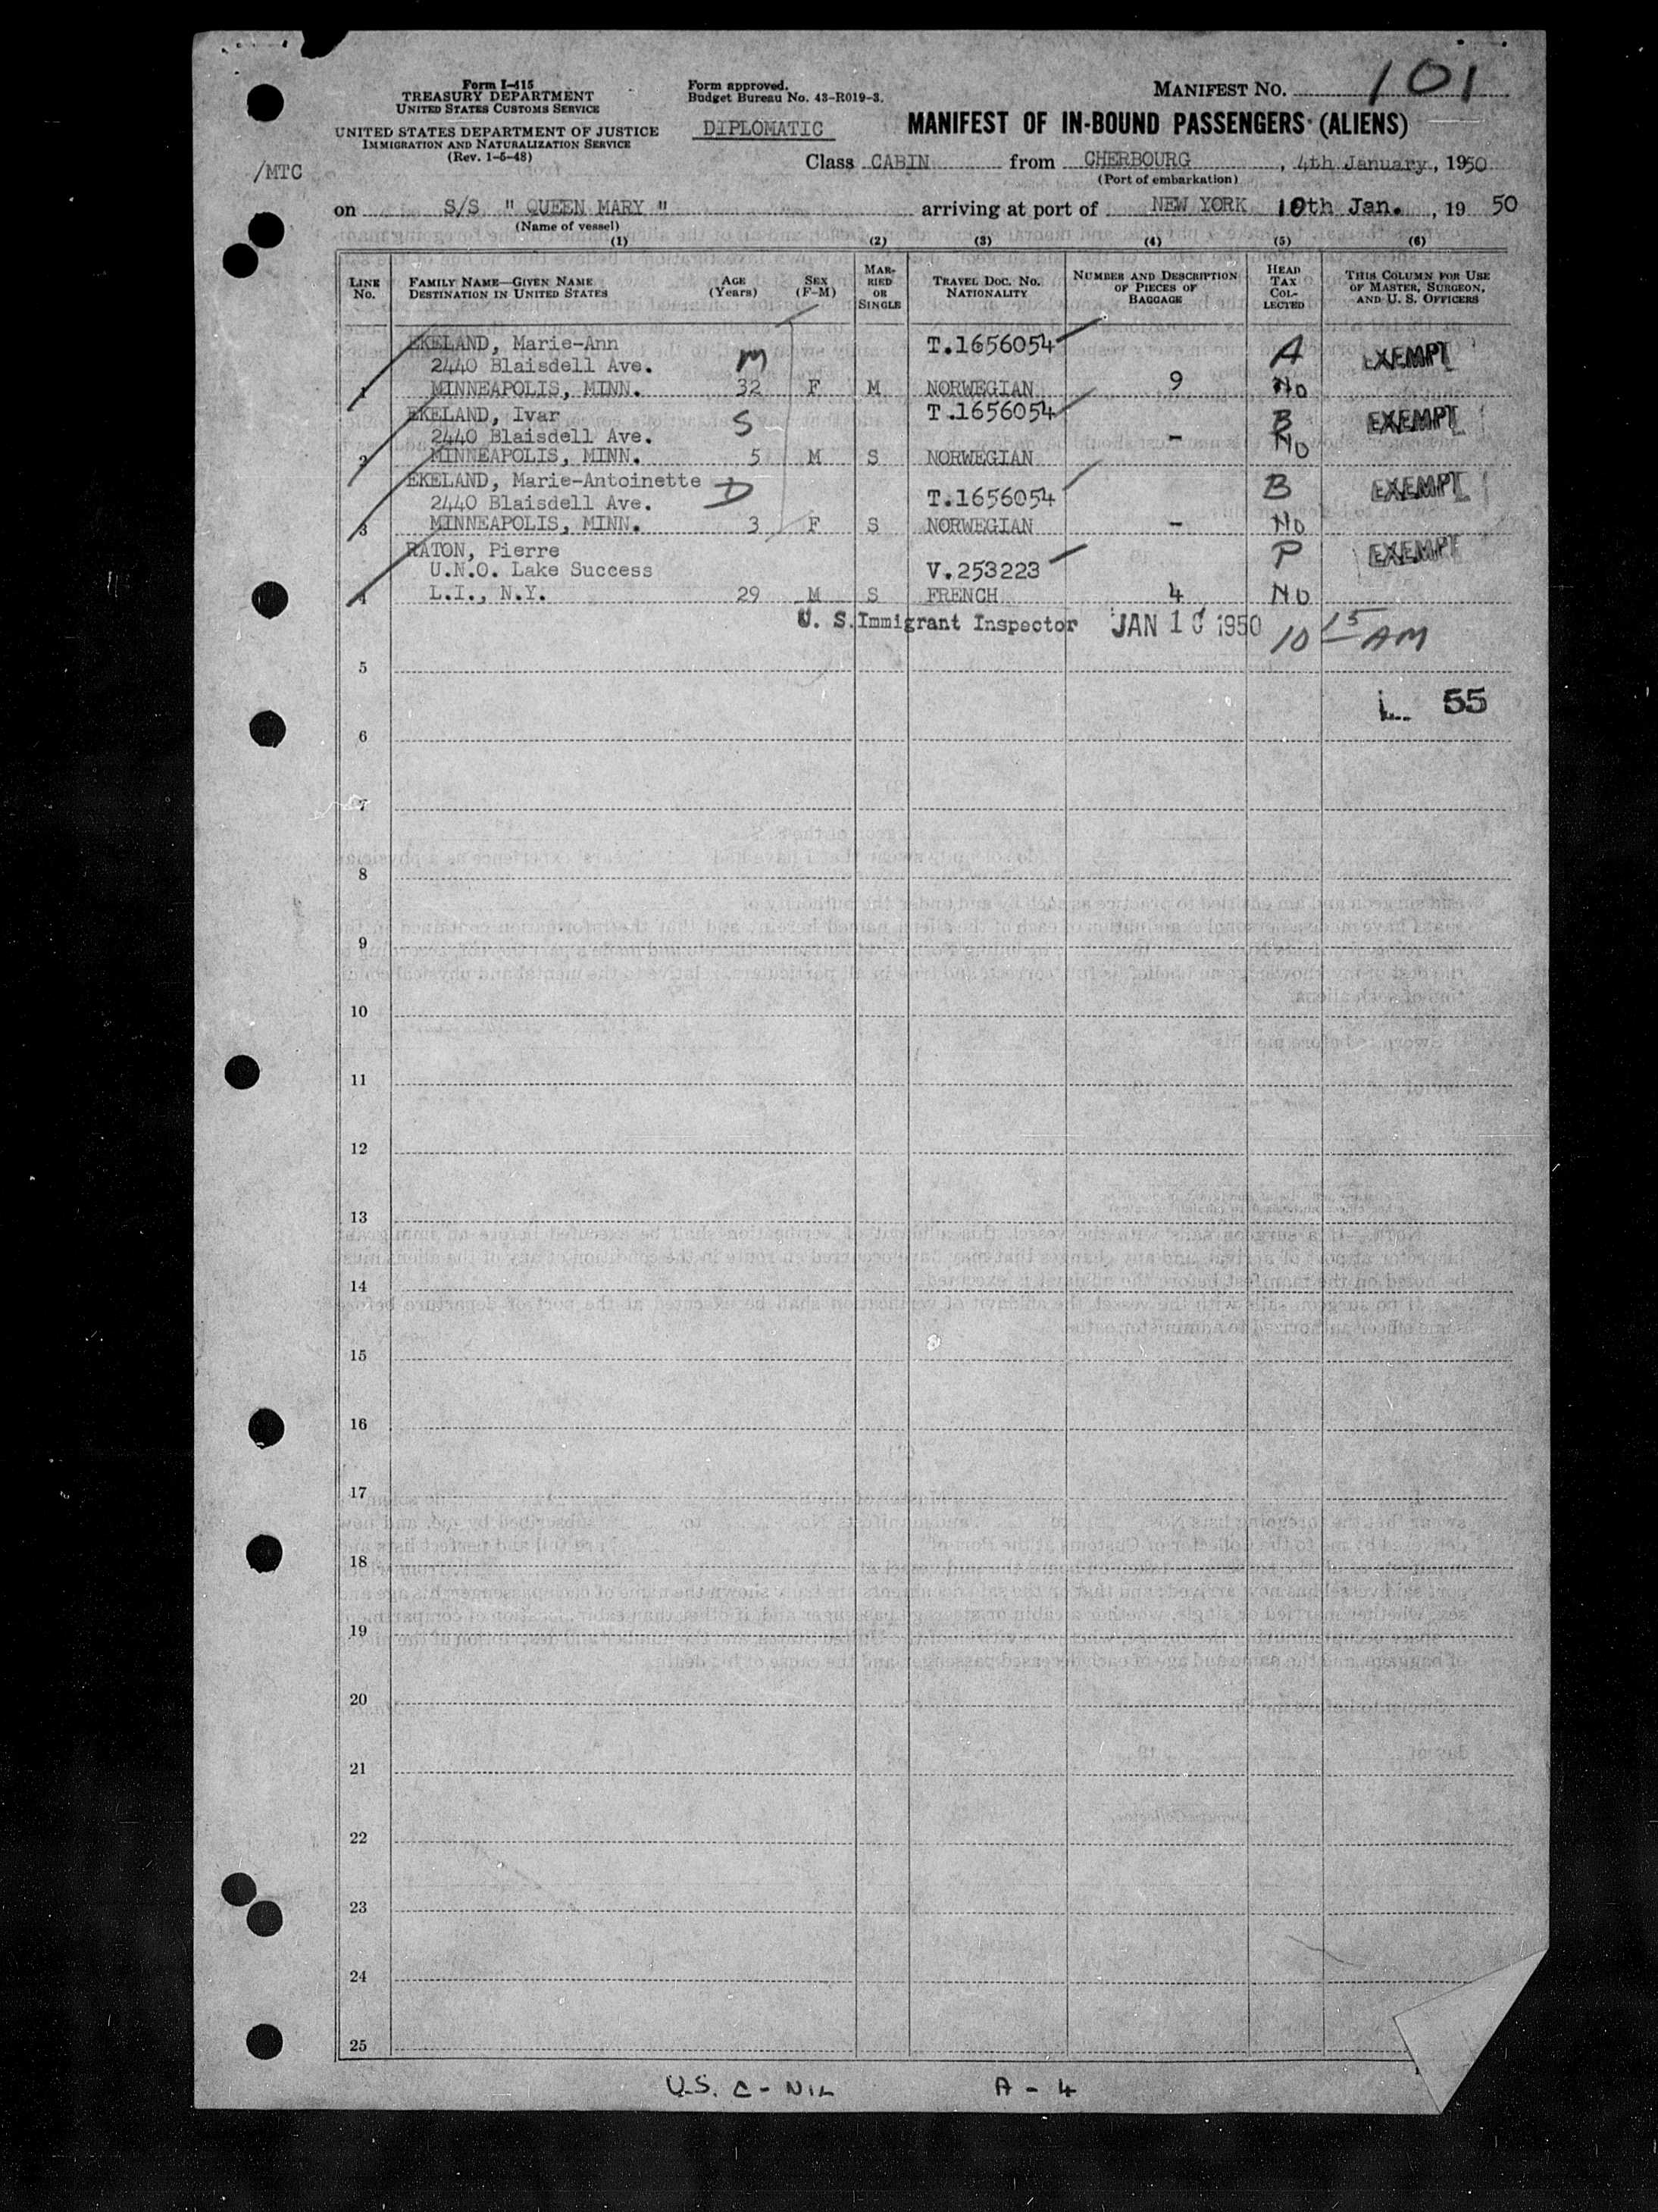 Form I-415
TREASURY DEPARTMENT
UNITED STATES CUSTOMS SERVICE
UNITED STATES DEPARTMENT OF JUSTICE
IMMIGRATION AND NATURALIZATION SERVICE
(Rev. 1-6-48)
/MTC
Form approved.
Budget Bureau No. 43-R019-3.
DIPLOMATIC
MANIFEST NO. 101
MANIFEST OF IN-BOUND PASSENGERS (ALIENS)
Class CABIN from CHERBOURG, 4th January, 1950
(Port of embarkation)
on S/S " QUEEN MARY " arriving at port of NEW YORK 10th Jan., 19 50
(Name of vessel)
(1) (2) (3) (4) (5) (6)
LINE No. FAMILY NAME—GIVEN NAME DESTINATION IN UNITED STATES AGE (Years) SEX (F-M) MARRIED OR SINGLE TRAVEL DOC. NO. NATIONALITY NUMBER AND DESCRIPTION OF PIECES OF BAGGAGE HEAD TAX COLLECTED THIS COLUMN FOR USE OF MASTER, SURGEON, AND U. S. OFFICERS
EKELAND, Marie-Ann T.1656054 A EXEMPT
2440 Blaisdell Ave. M
1 MINNEAPOLIS, MINN. 32 F M NORWEGIAN 9 No
EKELAND, Ivar S T.1656054 B EXEMPT
2440 Blaisdell Ave. -
2 MINNEAPOLIS, MINN. 5 M S NORWEGIAN No
EKELAND, Marie-Antoinette D B EXEMPT
2440 Blaisdell Ave. T.1656054
3 MINNEAPOLIS, MINN. 3 F S NORWEGIAN - No
RATON, Pierre P EXEMPT
U.N.O. Lake Success V.253223
4 L.I., N.Y. 29 M S FRENCH 4 No
U. S. Immigrant Inspector JAN 10 1950 10 15 AM
5
L 55
6
7
8
9
10
11
12
13
14
15
16
17
18
19
20
21
22
23
24
25
U.S. C - NIL A - 4